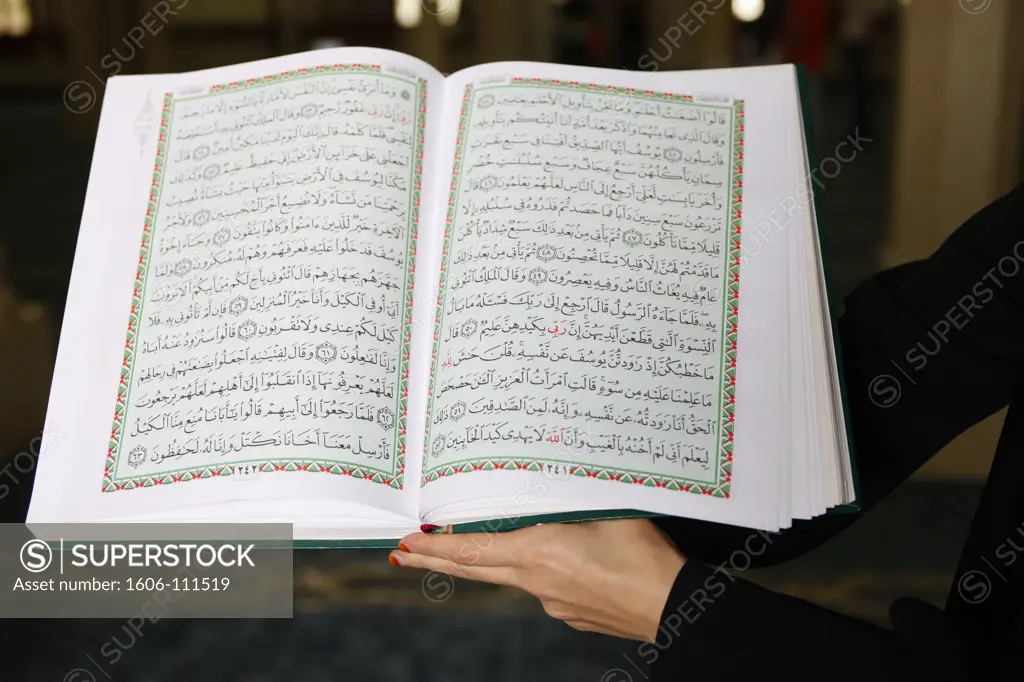 قَالُوٓا۟ أَضْغَٰثُ أَحْلَٰمٍ وَمَا نَحْنُ بِتَأْوِيلِ ٱلْأَحْلَٰمِ بِعَٰلِمِينَ ٤٤
وَقَالَ ٱلَّذِى نَجَا مِنْهُمَا وَٱدَّكَرَ بَعْدَ أُمَّةٍ أَنَا۠ أُنَبِّئُكُم بِتَأْوِيلِهِۦ
فَأَرْسِلُونِ ٤٥ يُوسُفُ أَيُّهَا ٱلصِّدِّيقُ أَفْتِنَا فِى سَبْعِ بَقَرَٰتٍ
سِمَانٍ يَأْكُلُهُنَّ سَبْعٌ عِجَافٌ وَسَبْعِ سُنۢبُلَٰتٍ خُضْرٍ
وَأُخَرَ يَابِسَٰتٍ لَّعَلِّىٓ أَرْجِعُ إِلَى ٱلنَّاسِ لَعَلَّهُمْ يَعْلَمُونَ ٤٦ قَالَ
تَزْرَعُونَ سَبْعَ سِنِينَ دَأَبًا فَمَا حَصَدتُّمْ فَذَرُوهُ فِى سُنۢبُلِهِۦٓ إِلَّا
قَلِيلًا مِّمَّا تَأْكُلُونَ ٤٧ ثُمَّ يَأْتِى مِنۢ بَعْدِ ذَٰلِكَ سَبْعٌ شِدَادٌ يَأْكُلْنَ
مَا قَدَّمْتُمْ لَهُنَّ إِلَّا قَلِيلًا مِّمَّا تُحْصِنُونَ ٤٨ ثُمَّ يَأْتِى مِنۢ بَعْدِ ذَٰلِكَ
عَامٌ فِيهِ يُغَاثُ ٱلنَّاسُ وَفِيهِ يَعْصِرُونَ ٤٩ وَقَالَ ٱلْمَلِكُ ٱئْتُونِى
بِهِۦ فَلَمَّا جَآءَهُ ٱلرَّسُولُ قَالَ ٱرْجِعْ إِلَىٰ رَبِّكَ فَسْـَٔلْهُ مَا بَالُ
ٱلنِّسْوَةِ ٱلَّٰتِى قَطَّعْنَ أَيْدِيَهُنَّ إِنَّ رَبِّى بِكَيْدِهِنَّ عَلِيمٌ ٥٠ قَالَ
مَا خَطْبُكُنَّ إِذْ رَٰوَدتُّنَّ يُوسُفَ عَن نَّفْسِهِۦ قُلْنَ حَٰشَ لِلَّهِ
مَا عَلِمْنَا عَلَيْهِ مِن سُوٓءٍ قَالَتِ ٱمْرَأَتُ ٱلْعَزِيزِ ٱلْـَٰٔنَ حَصْحَصَ
ٱلْحَقُّ أَنَا۠ رَٰوَدتُّهُۥ عَن نَّفْسِهِۦ وَإِنَّهُۥ لَمِنَ ٱلصَّٰدِقِينَ ٥١ ذَٰلِكَ
لِيَعْلَمَ أَنِّى لَمْ أَخُنْهُ بِٱلْغَيْبِ وَأَنَّ ٱللَّهَ لَا يَهْدِى كَيْدَ ٱلْخَآئِنِينَ ٥٢
٢٤١
وَمَآ أُبَرِّئُ نَفْسِىٓ إِنَّ ٱلنَّفْسَ لَأَمَّارَةٌۢ بِٱلسُّوٓءِ إِلَّا مَا رَحِمَ
رَبِّىٓ إِنَّ رَبِّى غَفُورٌ رَّحِيمٌ ٥٣ وَقَالَ ٱلْمَلِكُ ٱئْتُونِى بِهِۦٓ أَسْتَخْلِصْهُ
لِنَفْسِى فَلَمَّا كَلَّمَهُۥ قَالَ إِنَّكَ ٱلْيَوْمَ لَدَيْنَا مَكِينٌ أَمِينٌ ٥٤ قَالَ
ٱجْعَلْنِى عَلَىٰ خَزَآئِنِ ٱلْأَرْضِ إِنِّى حَفِيظٌ عَلِيمٌ ٥٥ وَكَذَٰلِكَ
مَكَّنَّا لِيُوسُفَ فِى ٱلْأَرْضِ يَتَبَوَّأُ مِنْهَا حَيْثُ يَشَآءُ نُصِيبُ
بِرَحْمَتِنَا مَن نَّشَآءُ وَلَا نُضِيعُ أَجْرَ ٱلْمُحْسِنِينَ ٥٦ وَلَأَجْرُ
ٱلْـَٔاخِرَةِ خَيْرٌ لِّلَّذِينَ ءَامَنُوا۟ وَكَانُوا۟ يَتَّقُونَ ٥٧ وَجَآءَ إِخْوَةُ
يُوسُفَ فَدَخَلُوا۟ عَلَيْهِ فَعَرَفَهُمْ وَهُمْ لَهُۥ مُنكِرُونَ ٥٨ وَلَمَّا
جَهَّزَهُم بِجَهَازِهِمْ قَالَ ٱئْتُونِى بِأَخٍ لَّكُم مِّنْ أَبِيكُمْ أَلَا تَرَوْنَ
أَنِّىٓ أُوفِى ٱلْكَيْلَ وَأَنَا۠ خَيْرُ ٱلْمُنزِلِينَ ٥٩ فَإِن لَّمْ تَأْتُونِى بِهِۦ فَلَا
كَيْلَ لَكُمْ عِندِى وَلَا تَقْرَبُونِ ٦٠ قَالُوا۟ سَنُرَٰوِدُ عَنْهُ أَبَاهُ
وَإِنَّا لَفَٰعِلُونَ ٦١ وَقَالَ لِفِتْيَٰنِهِ ٱجْعَلُوا۟ بِضَٰعَتَهُمْ فِى رِحَالِهِمْ
لَعَلَّهُمْ يَعْرِفُونَهَآ إِذَا ٱنقَلَبُوٓا۟ إِلَىٰٓ أَهْلِهِمْ لَعَلَّهُمْ يَرْجِعُونَ
٦٢ فَلَمَّا رَجَعُوٓا۟ إِلَىٰٓ أَبِيهِمْ قَالُوا۟ يَٰٓأَبَانَا مُنِعَ مِنَّا ٱلْكَيْلُ
فَأَرْسِلْ مَعَنَآ أَخَانَا نَكْتَلْ وَإِنَّا لَهُۥ لَحَٰفِظُونَ ٦٣
٢٤٢
SUPERSTOCK
Asset number: 1606-111519